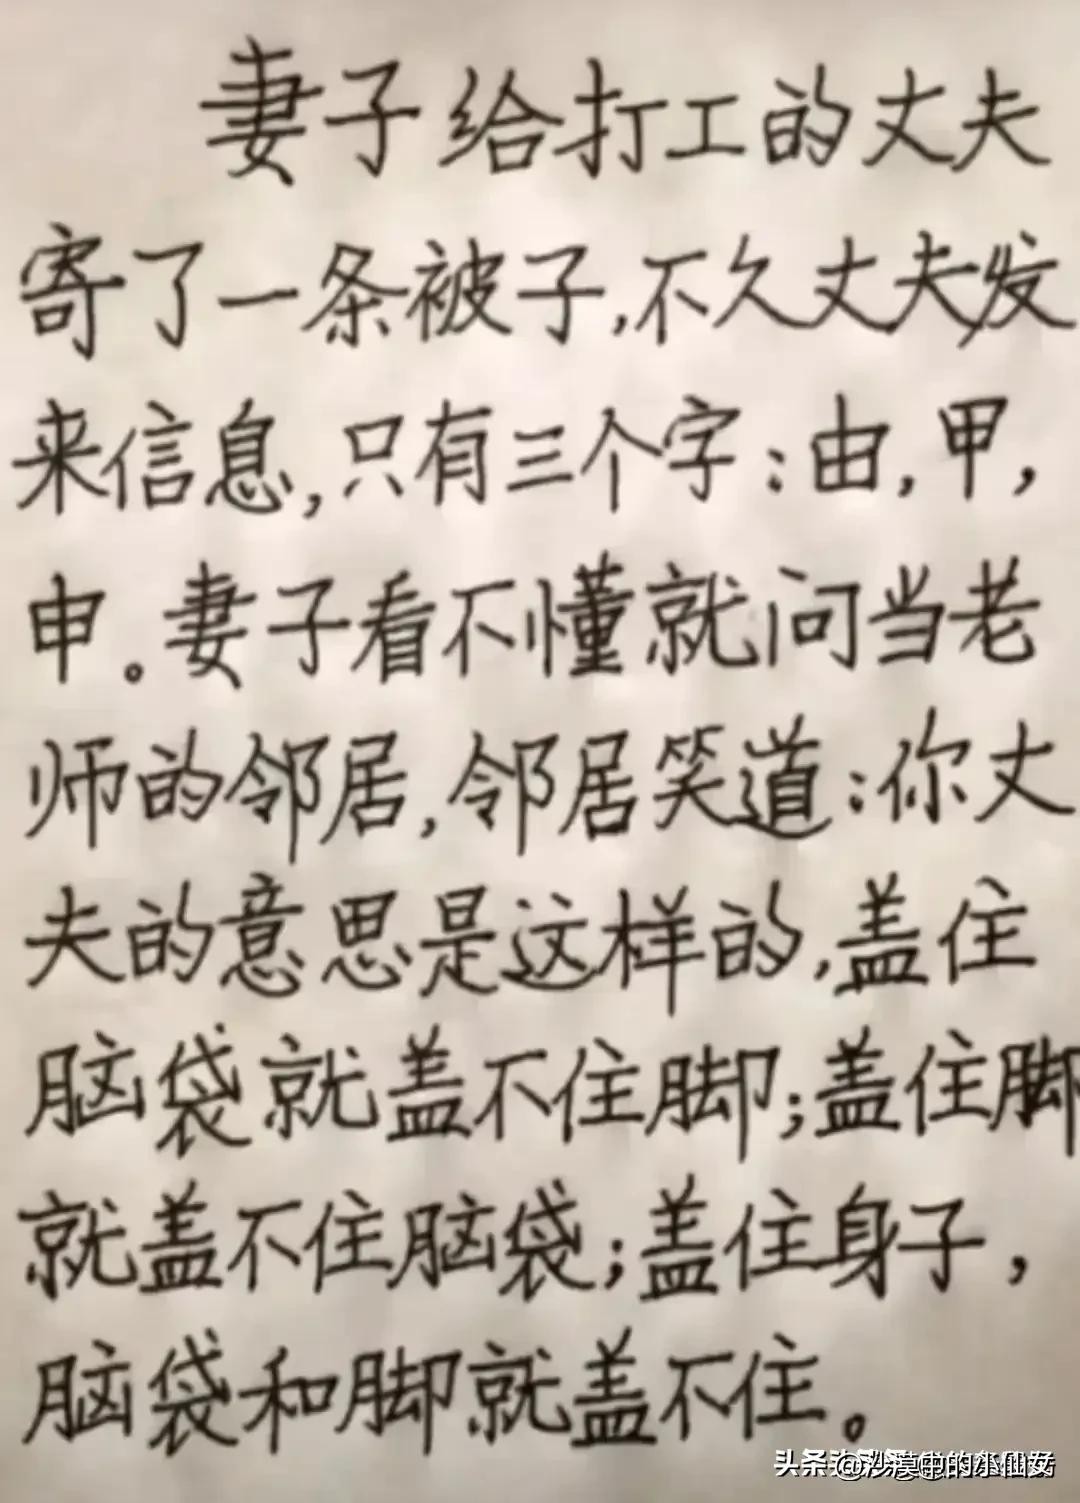 妻子给打工的丈夫
寄了一条被子,不久丈夫发
来信息,只有三个字:由,甲,
申。妻子看不懂就问当老
师的邻居,邻居笑道:你丈
夫的意思是这样的,盖住
脑袋就盖不住脚;盖住脚
就盖不住脑袋;盖住身子,
脑袋和脚就盖不住。
头条 @沙漠中的小仙女